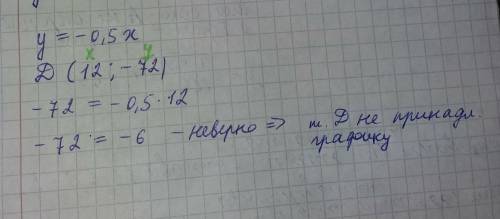 y = -0,5x
x y
Д (12; -72)
-72 = -0,5·12
-72 = -6 - неверно => т. Д не принадл.
графику